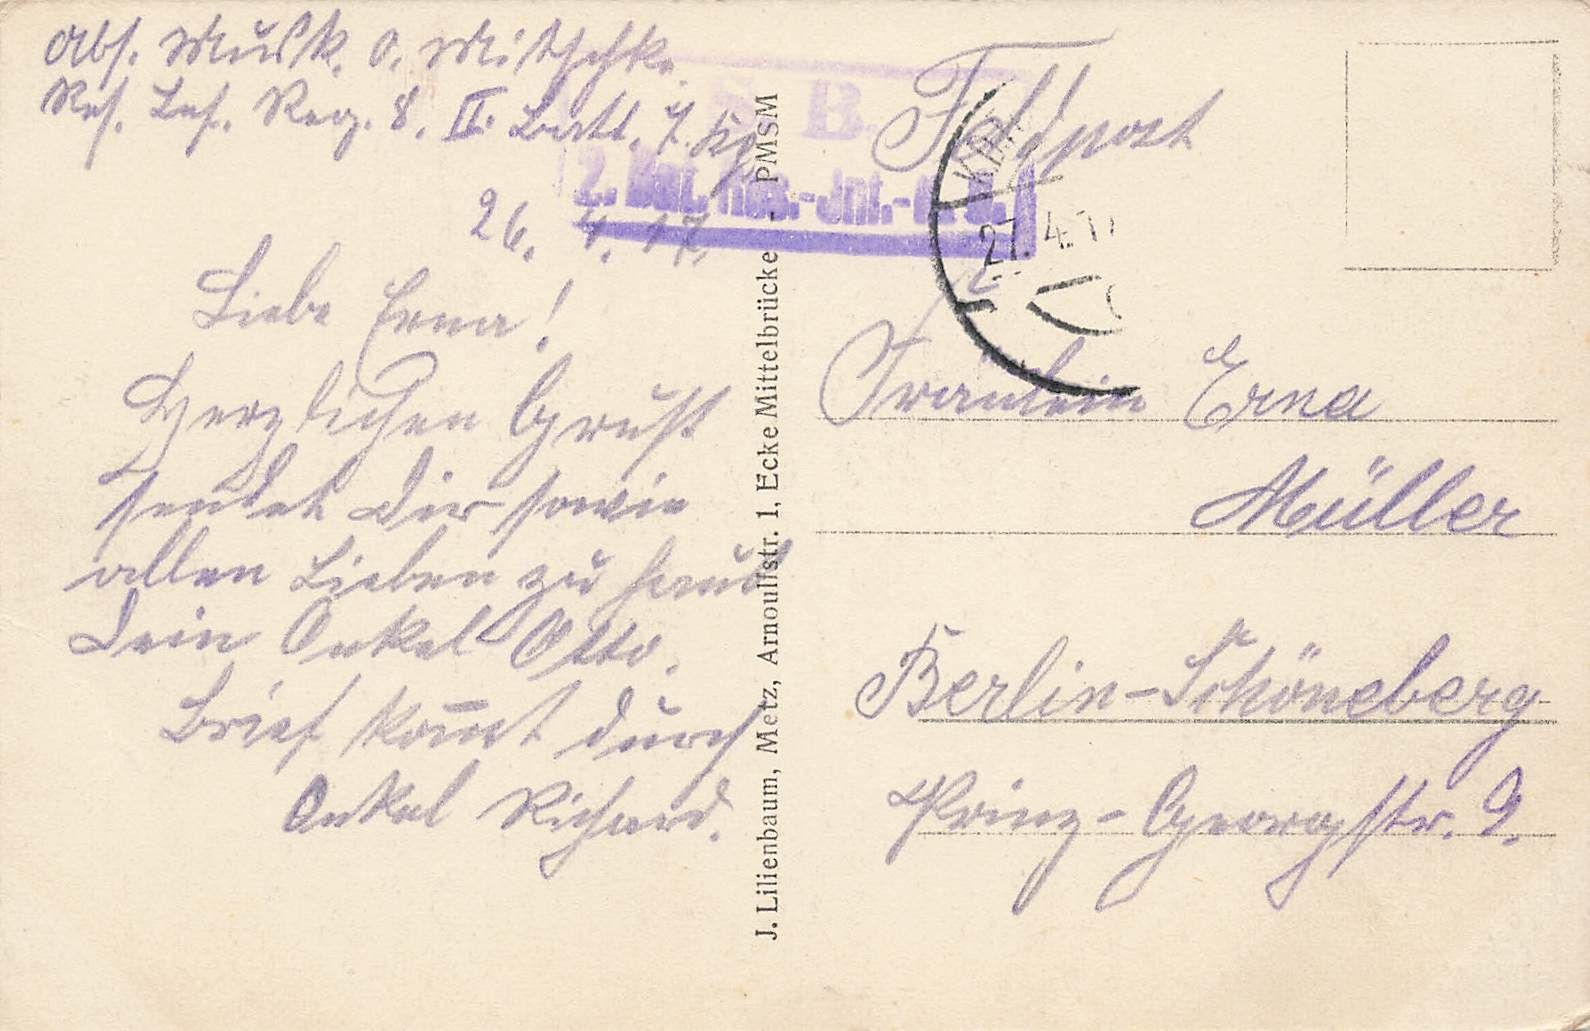 Abs. Musk. O. Mitschke.
Res. Inf. Reg. 8. II. Batl. 7. Kp
26. 4. 17.
Liebe Erna!
Herzlichen Gruß
sendet Dir sowie
allen Lieben zu Haus
Dein Onkel Otto.
Brief kom̄t durch
Onkel Richard.
J. Lilienbaum, Metz, Arnoulfstr. 1, Ecke Mittelbrücke - PMSM
S. B.
2. Bat. Res.-Inf.-R. 8.
27.4.17
Feldpost
Fräulein Erna
Müller
Berlin-Schöneberg
Prinz-Georgstr. 9.